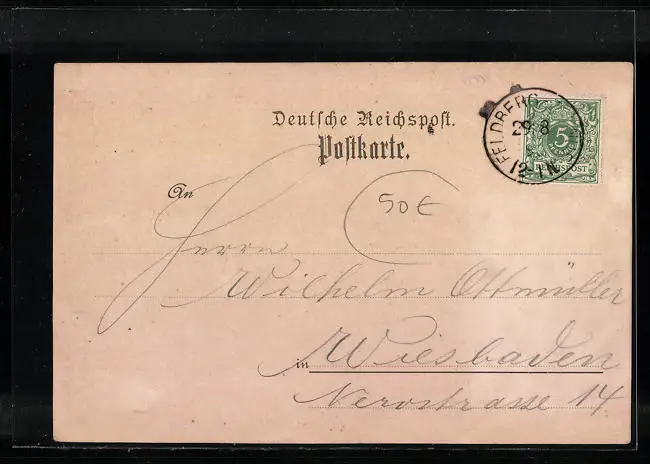 Deutsche Reichspost.
Postkarte.
FELDBERG
29/8
12-1N
5
PFENNIG
REICHSPOST
An
50 €
Herrn
Wilhelm Ottmüller
in Wiesbaden
Nerostrasse 14